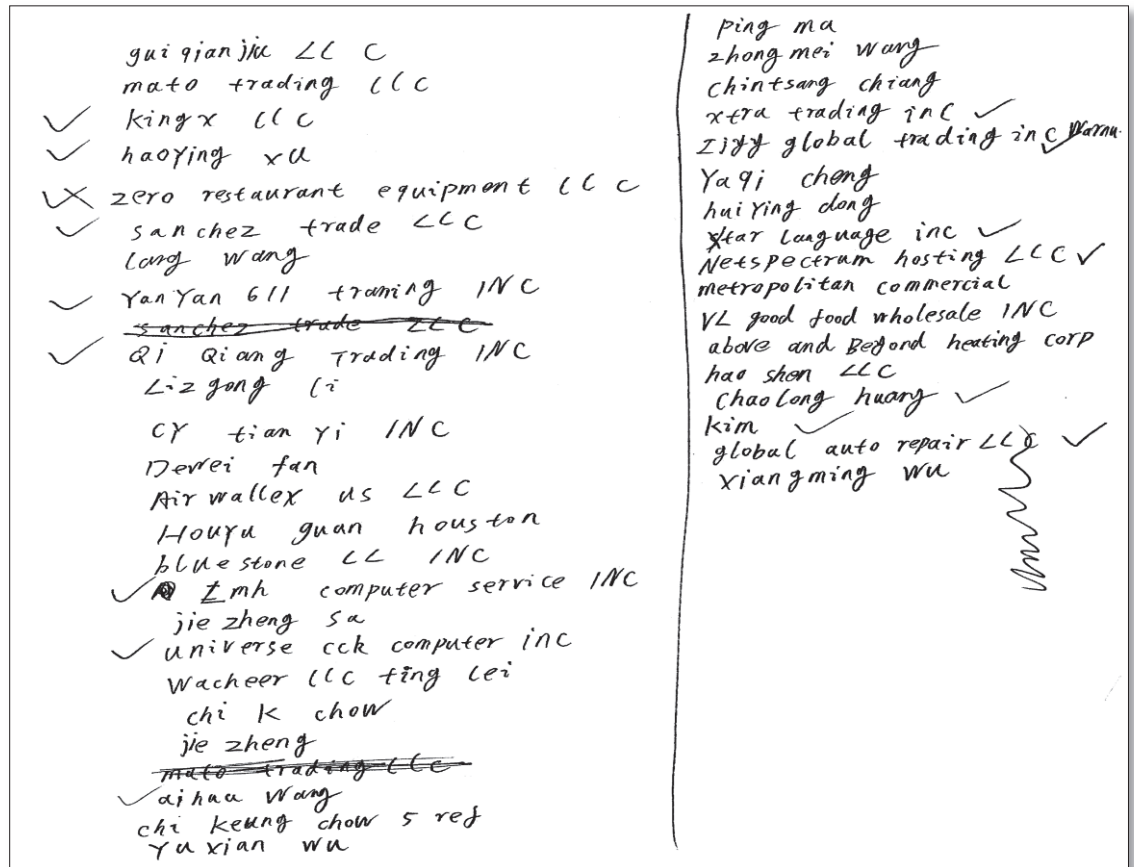 guiqianjiu LLC
mato trading LLC
kingx LLC
haoYing xu
zero restaurant equipment LLC
sanchez trade LLC
Lang wang
YanYan 611 traning INC
sanchez trade LLC
Qi Qiang Trading INC
Liz gong Li
CY tian Yi INC
Dewei fan
Air wallex us LLC
Houyu guan houston
bluestone LL INC
Lmh computer service INC
jie zheng sa
universe cck computer inc
Wacheer LLC ting Lei
chi k chow
jie zheng
mato trading LLC
aihua Wang
chi keung chow 5 ref
Yuxian wu
ping ma
zhongmei wang
Chintsang chiang
xtra trading inc
global trading inc
Yaqi cheng
huiYing dong
star language inc
Netspectrum hosting LLC
metropolitan commercial
VL good food wholesale INC
above and Beyond heating corp
hao shen LLC
Chaolong huang
kim
global auto repair LLC
xiangming wu